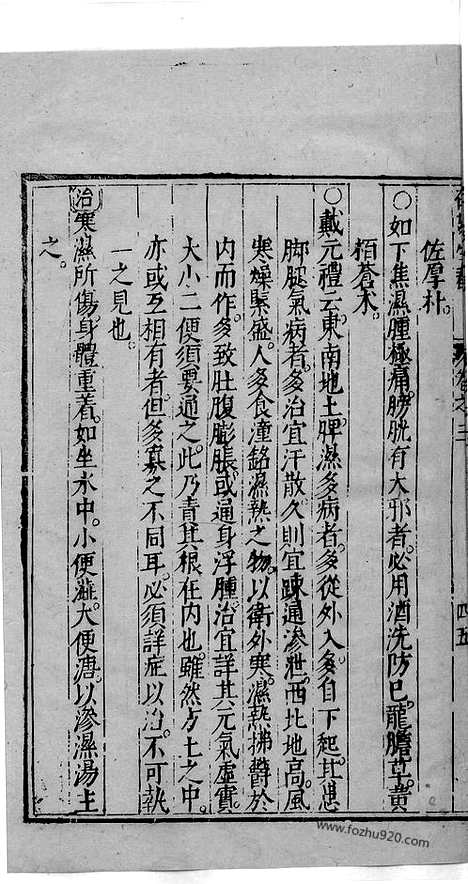 佐厚朴。
〇如下焦濕腫極痛。膀胱有大邪者。必用酒洗防巳。龍膽草。黄
栢蒼术。
〇戴元禮云。東南地土脾濕。多病者。多從外入。多自下起。其患
脚腿氣病者。多治宜汗散。久則宜疎通滲泄。西北地高。風
寒燥緊盛。人多食潼銘濕熱之物。以衛外寒。濕熱拂欝於
内而作。多致肚腹膨脹。或通身浮腫。治宜詳其元氣虚實。
大小二便須要通之。此乃青其根在内也。雖然方土之中。
亦或互相有者。但多寡之不同耳。必須詳症以治。不可執
一之見也。
治寒濕所傷。身體重着。如坐水中。小便澁。大便溏。以滲濕湯主
之。
卷之二
四五
www.fozhu920.com